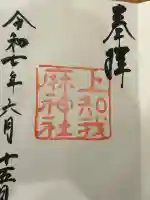 奉拝
上知我
麻神社
令和七年六月十五日